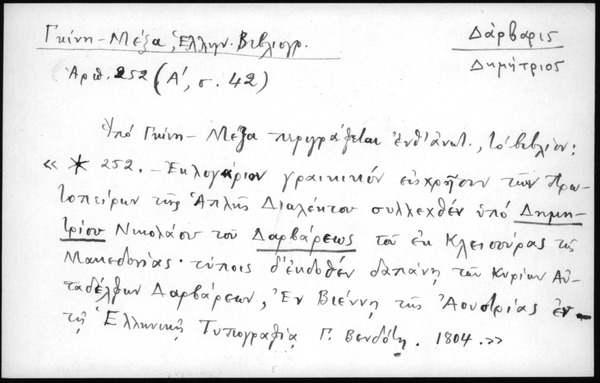 Γκίνη - Μέξα, Ἑλλην. Βιβλιογρ.
Δάρβαρις
Δημήτριος
Ἀριθ. 252 (Α', σ. 42)
Ὑπό Γκίνη - Μέξα περιγράφεται ἐνθ' ἀνωτ., τό βιβλίον:
« * 252. - Εκλογάριον γραικικόν εἰς χρῆσιν τῶν Πρω-
τοπείρων τῆς Ἁπλῆς Διαλέκτου συλλεχθέν ὑπό Δημη-
τρίου Νικολάου τοῦ Δαρβάρεως τοῦ ἐκ Κλεισούρας τῆς
Μακεδονίας· τύποις δ' ἐκδοθέν δαπάνῃ τῶν Κυρίων Αὐ-
ταδέλφων Δαρβάρεων, Ἐν Βιέννῃ τῆς Ἀουστρίας ἐν
τῇ Ἑλληνικῇ Τυπογραφίᾳ Γ. Βενδότη. 1804.»